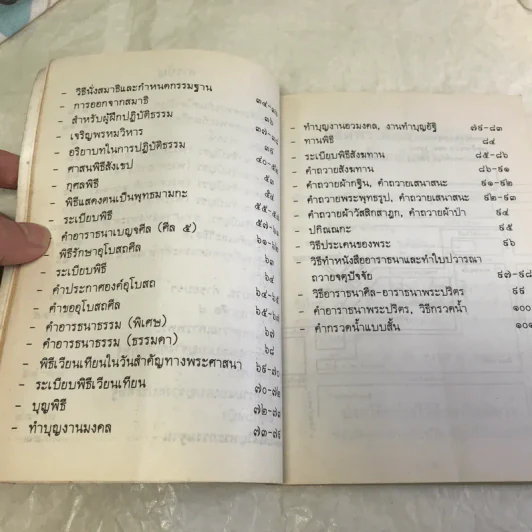 - วิธีนั่งสมาธิและกำหนดกรรมฐาน
- การออกจากสมาธิ
- สำหรับผู้ฝึกปฏิบัติธรรม ๓๖
- เจริญพรหมวิหาร
- อริยาบทในการปฏิบัติธรรม ๓๙
- ศาสนพิธีสังเขป
- กุศลพิธี ๕๓
- พิธีแสดงตนเป็นพุทธมามกะ ๕๔
- ระเบียบพิธี
- คำอาราธนาเบญจศีล (ศีล ๕)
- พิธีรักษาอุโบสถศีล ๖๑-๖๒
- ระเบียบพิธี ๖๓
- คำประกาศองค์อุโบสถ ๖๔
- คำขออุโบสถศีล ๖๔-๖๕
- คำอาราธนาธรรม (พิเศษ)
- คำอาราธนาธรรม (ธรรมดา) ๖๗
- พิธีเวียนเทียนในวันสำคัญทางพระศาสนา ๖๘
- ระเบียบพิธีเวียนเทียน ๖๙-๗๐
- บุญพิธี ๗๐-๗๒
- ทำบุญงานมงคล ๗๒-๗๓
๗๓-๗๙
- ทำบุญงานอวมงคล, งานทำบุญอัฐิ ๗๙-๘๓
- ทานพิธี ๘๔
- ระเบียบพิธีสังฆทาน ๘๕-๘๖
- คำถวายสังฆทาน ๘๖-๙๑
- คำถวายผ้ากฐิน, คำถวายเสนาสนะ ๙๑-๙๒
- คำถวายพระพุทธรูป, คำถวายเสนาสนะ ๙๒-๙๓
- คำถวายผ้าวัสสิกสาฎก, คำถวายผ้าป่า ๙๔
- ปกิณณกะ ๙๕
- วิธีประเคนของพระ ๙๖
- วิธีทำหนังสืออาราธนาและทำใบปวารณา
ถวายจตุปัจจัย ๙๗-๙๘
- วิธีอาราธนาศีล-อาราธนาพระปริตร ๙๙
- คำอาราธนาพระปริตร, วิธีกรวดน้ำ ๑๐๐
- คำกรวดน้ำแบบสั้น